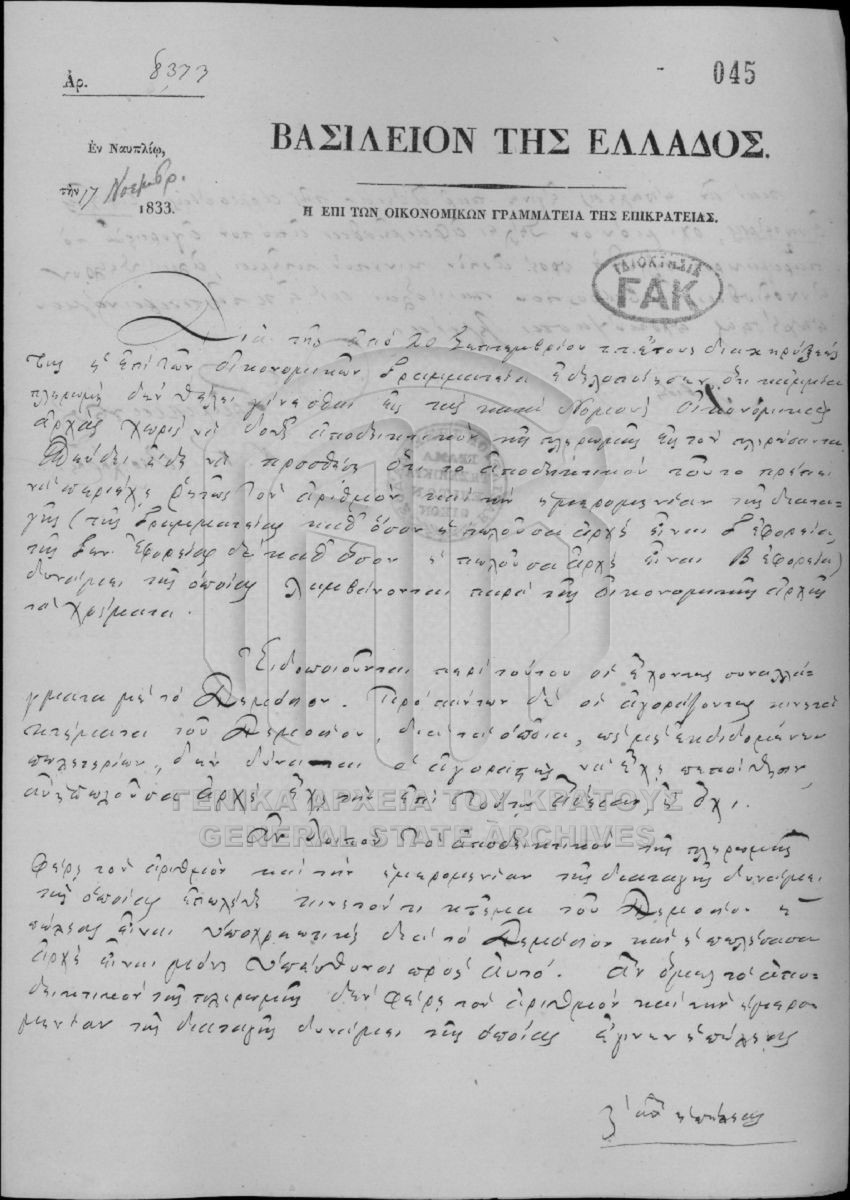 Ἀρ. 8373
045
Ἐν Ναυπλίῳ,
τὴν 17 Νοεμβρ.
1833.
ΒΑΣΙΛΕΙΟΝ ΤΗΣ ΕΛΛΑΔΟΣ.
Η ΕΠΙ ΤΩΝ ΟΙΚΟΝΟΜΙΚΩΝ ΓΡΑΜΜΑΤΕΙΑ ΤΗΣ ΕΠΙΚΡΑΤΕΙΑΣ.
ΙΔΙΟΚΤΗΣΙΑ
ΓΑΚ
Διὰ τῆς ἀπὸ 20 Σεπτεμβρίου τ. ἔτους διακηρύξεώς
της ἡ ἐπὶ τῶν Οἰκονομικῶν Γραμματεία ἐδηλοποίησεν, ὅτι κᾀμμία
πληρωμὴ δὲν θέλει γίνεσθαι εἰς τὰς κατὰ Νομοὺς Οἰκονομικὰς
ἀρχὰς χωρὶς νὰ δοθῇ ἀποδεικτικὸν τῆς πληρωμῆς εἰς τὸν πληρώσαντα.
νὰ προσθέσῃ ὅτι τὸ ἀποδεικτικὸν τοῦτο πρέπει
νὰ περιέχῃ ῥητῶς τὸν ἀριθμὸν καὶ τὴν ἡμερομηνίαν τῆς διατα-
γῆς (τῆς Γραμματείας καθ' ὅσον ἡ πωλοῦσα ἀρχὴ εἶναι Γ. Ἐφορεία,
τῆς Γεν. Ἐφορείας δὲ καθ' ὅσον ἡ πωλοῦσα ἀρχὴ εἶναι Β. Ἐφορεία)
δυνάμει τῆς ὁποίας λαμβάνονται παρὰ τῆς Οἰκονομικῆς ἀρχῆς
τὰ χρήματα.
Εἰδοποιοῦνται περὶ τούτου οἱ ἔχοντες συναλλά-
γματα μὲ τὸ Δημόσιον. Πρὸ πάντων δὲ οἱ ἀγοράζοντες κινητὰ
κτήματα τοῦ Δημοσίου, διὰ τὰ ὁποῖα, ὡς μὴ ἐκδιδομένων
πωλητηρίων, δὲν δύναται ὁ ἀγοραστὴς νὰ ἔχῃ πεποίθησιν
ἂν ἡ πωλοῦσα ἀρχὴ ἔχῃ τὴν ἐπὶ τούτῳ ἄδειαν, ἢ ὄχι.
ΓΕΝΙΚΑ ΑΡΧΕΙΑ ΤΟΥ ΚΡΑΤΟΥΣ
GENERAL STATE ARCHIVES
Ἂν λοιπὸν τὸ ἀποδεικτικὸν τῆς πληρωμῆς
φέρῃ τὸν ἀριθμὸν καὶ τὴν ἡμερομηνίαν τῆς διαταγῆς δυνάμει
τῆς ὁποίας ἐπωλήθη κινητόν τι κτῆμα τοῦ Δημοσίου ἡ
πώλησις εἶναι ὑποχρεωτικὴ διὰ τὸ Δημόσιον καὶ ἡ πωλήσασα
ἀρχὴ εἶναι μόνη ὑπεύθυνος πρὸς αὐτό. Ἂν ὅμως τὸ ἀπο-
δεικτικὸν τῆς πληρωμῆς δὲν φέρῃ τὸν ἀριθμὸν καὶ τὴν ἡμερο-
μηνίαν τῆς διαταγῆς δυνάμει τῆς ὁποίας ἔγινεν ἡ πώλησις